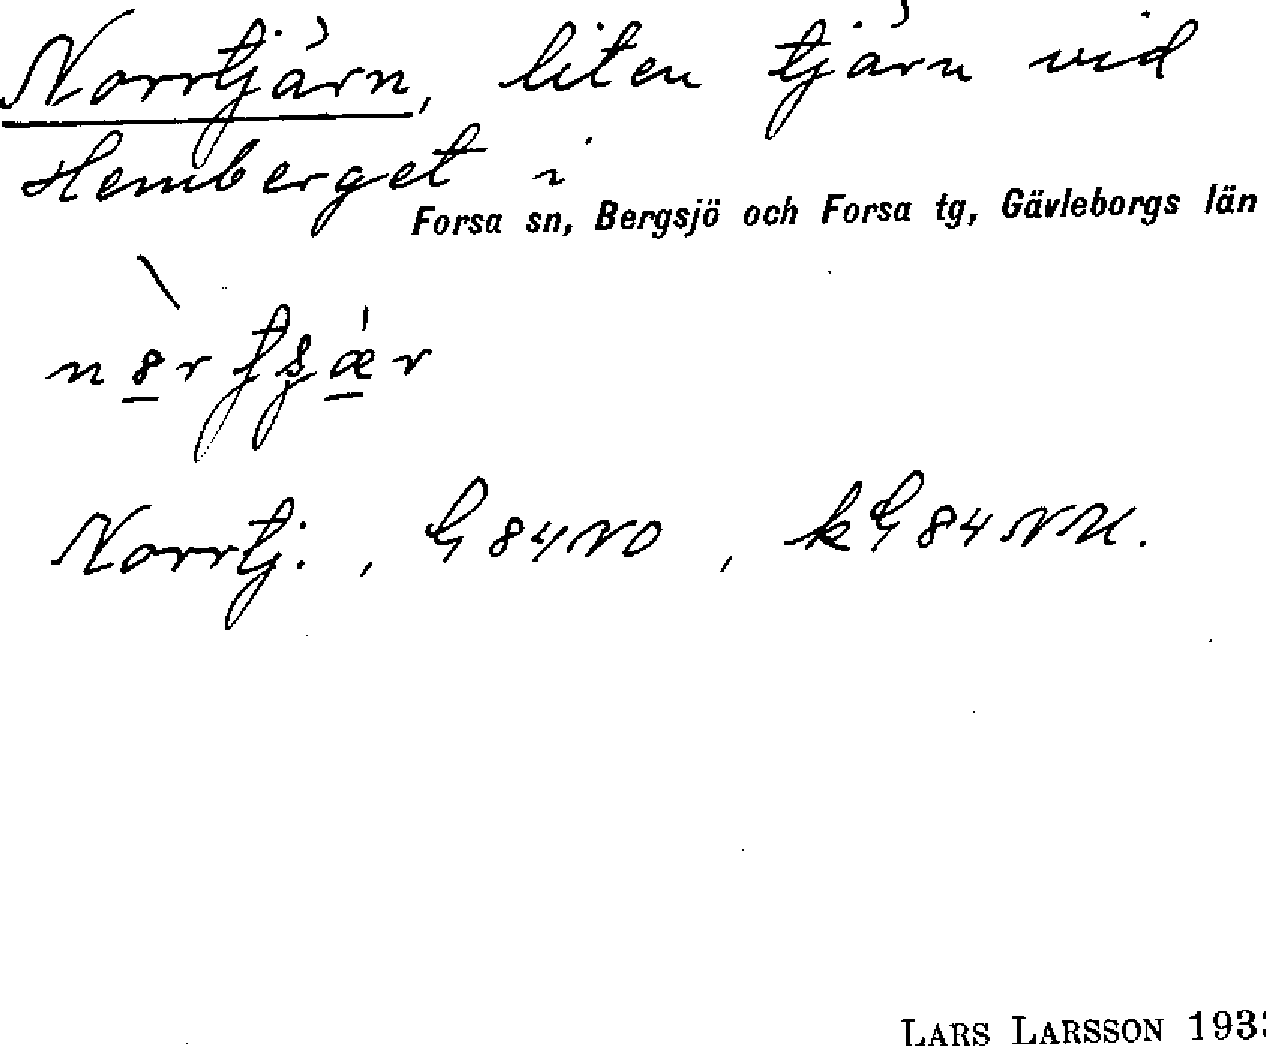 Norrtjärn, liten tjärn vid
Hemberget i
Forsa sn, Bergsjö och Forsa tg, Gävleborgs län
Norrtj., G84NO, kG84NV.
LARS LARSSON 193